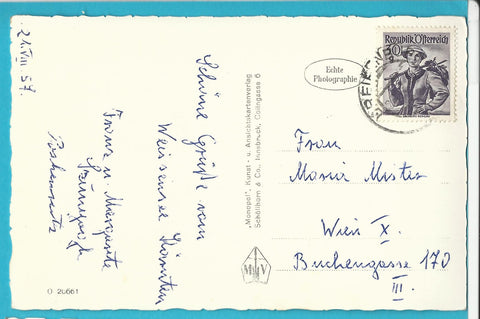 21.VIII 57.
Schöne Grüße vom
Weissensee Kärnten.
Franz u. Margarete
"Monopol", Kunst- u. Ansichtskartenverlag
Schöllhorn & Co., Innsbruck, Colingasse 6
Echte
Photographie
Republik Österreich
30
g
Frau
Maria Mister
Wien X.
Buchengasse 170
III.
M V
O 20661